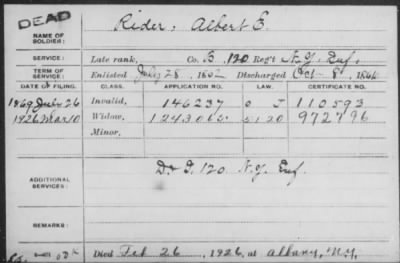 DEAD
NAME OF SOLDIER: Rider, Albert E.
SERVICE: Late rank, Co. B, 120 Reg't N.Y. Inf.
TERM OF SERVICE: Enlisted July 28, 1862 Discharged Oct 8, 1866
DATE OF FILING. CLASS. APPLICATION NO. LAW. CERTIFICATE NO.
1869 July 26 Invalid, 146237 O J 110593
1926 Mar 10 Widow, S 120 972796
Minor,
ADDITIONAL SERVICES: D 120 N.Y. Inf.
REMARKS:
Died Feb 26, 1926, at Albany, N.Y.